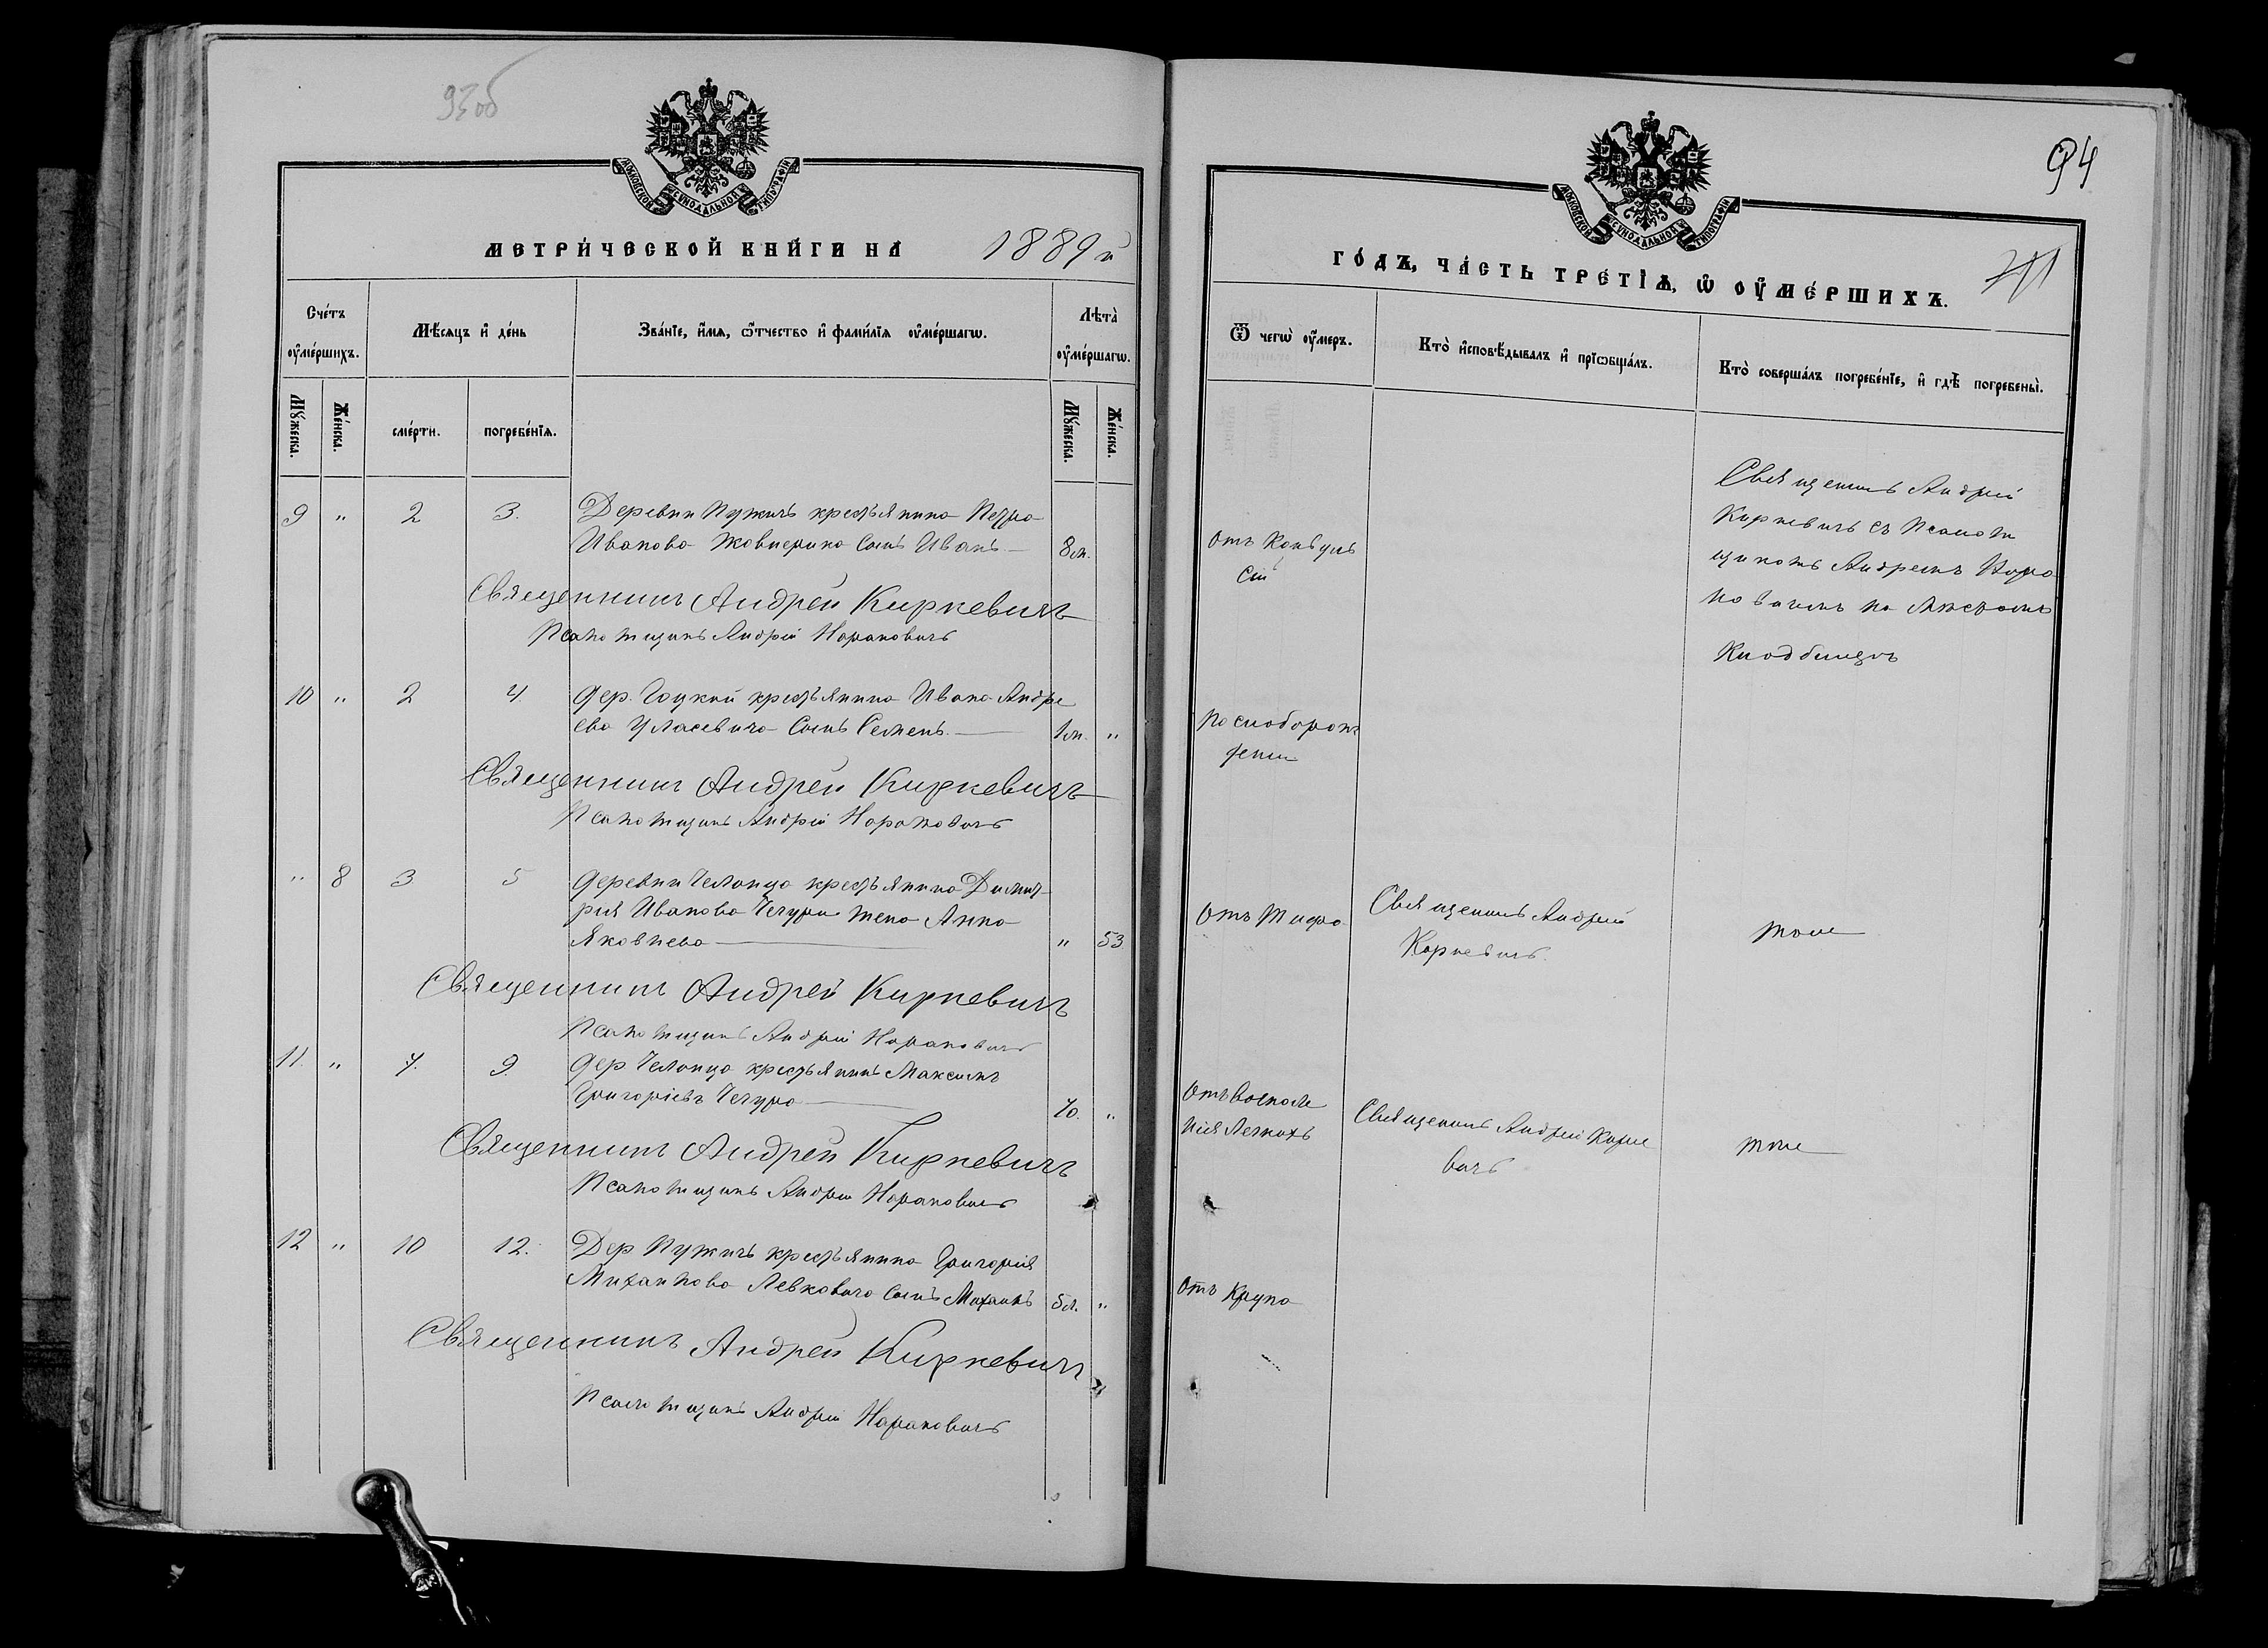 93об
МОСКОВСКОЙ СѴНОДАЛЬНОЙ ТИПОГРАФІИ
МЕТРИ́ЧЕСКОЙ КНИ́ГИ НА̀ 1889 й
Сче́тъ ᲂу҆ме́ршихъ.
Мѣ́сяцъ и҆ де́нь
Зва́нїе, и҆́мѧ, ѻ҆́тчество и҆ фами́лїѧ ᲂу҆ме́ршагѡ.
Лѣта̀ ᲂу҆ме́ршагѡ.
Мꙋ́жеска.
Же́нска.
сме́рти.
погребе́нїѧ.
Мꙋ́жеска.
Же́нска.
9 " 2 3. Деревни Пужичъ крестьянина Петра
Иванова Жовнерика сынъ Иванъ — 8м.
Священникъ Андрей Киркевичъ
Псаломщикъ Андрій Наранович
10 " 2 4. Дер. Гоцкой крестьянина Ивана Андре
ева Уласевича сынъ Семенъ. — 1м. "
Священникъ Андрей Киркевичъ
Псаломщикъ Андрій Наранович
" 8 3 5 Деревни Челонца крестьянина Димит-
рія Иванова Чечуры жена Анна
Яковлева — " 53
Священникъ Андрей Киркевичъ
Псаломщикъ Андрій Наранович
11. " 7. 9. Дер. Челонца крестьянинъ Максимъ
Григоріевъ Чечура — 70. "
Священникъ Андрей Киркевичъ
Псаломщикъ Андрій Наранович
12 " 10 12. Дер Пужичъ крестьянина Григорія
Михаилова Левковича сынъ Михаилъ 5л. "
Священникъ Андрей Киркевичъ
Псаломщикъ Андрій Наранович
94
МОСКОВСКОЙ СѴНОДАЛЬНОЙ ТИПОГРАФІИ
ГО́ДЪ, ЧА́СТЬ ТРЕ́ТІѦ, Ѡ҆ ОУ҆МЕ́РШИХЪ.
Ѿ чегѡ̀ ᲂу҆́меръ.
Кто̀ и҆сповѣ́дывалъ и҆ прїѡбща́лъ.
Кто̀ соверша́лъ погребе́нїе, и҆ гдѣ̀ погребены̀.
отъ Конвуль
сій
Священникъ Андрей
Киркевичъ съ псалом
щикомъ Андреемъ Нара
новичемъ на мѣстномъ
Кладбищѣ
По слаборож
деніи
Отъ Тифа
Священникъ Андрей
Киркевичъ.
тоже
Отъ воспале
нія легкихъ
Священникъ Андрей Кирке
вичъ
тоже
отъ Крупа